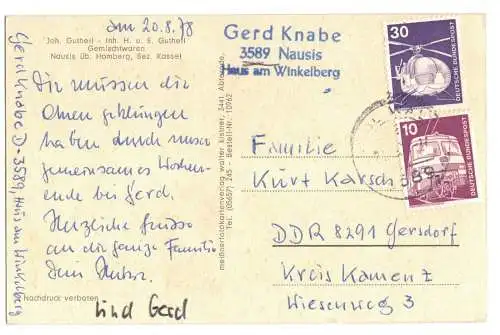 am 20.8.78
Joh. Gutheil - Inh. H. u. E. Gutheil
Gemischtwaren
Nausis üb. Homberg, Bez. Kassel
Gerd Knabe
3589 Nausis
Haus am Winkelberg
30
DEUTSCHE BUNDESPOST
10
DEUTSCHE BUNDESPOST
Gerd Knabe D-3589, Haus am Winkelberg
Dir müssen die
Ohren geklungen
haben durch unser
gemeinsames Wochen-
ende bei Gerd.
Herzliche Grüsse
an die ganze Familie
Dein
und Gerd
Nachdruck verboten
meißnerlandkartenverlag walter kistner, 3441 Abterode,
Tel. (05657) 245 - Bestell-Nr. 10962
Familie
Kurt Karsch
DDR 8291 Gersdorf
Kreis Kamenz
Wiesenweg 3